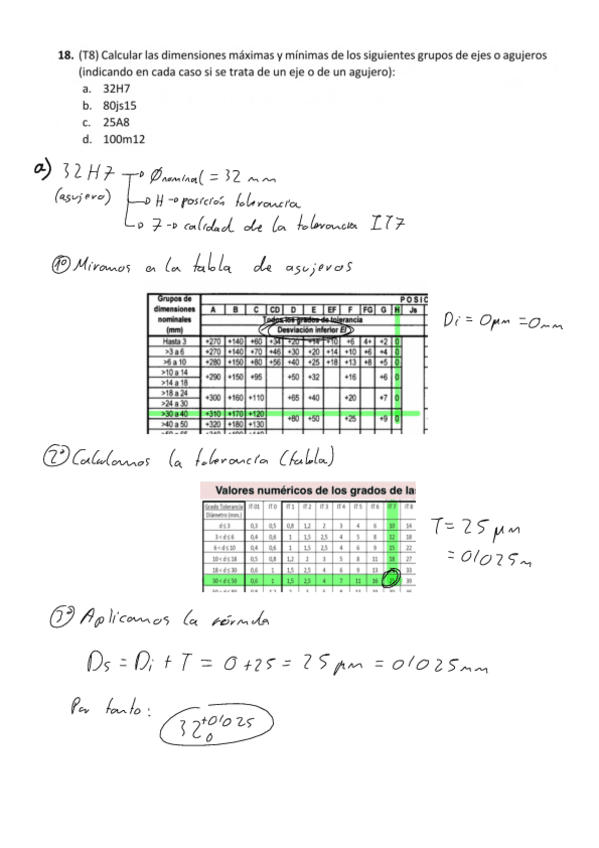 18. (T8) Calcular las dimensiones máximas y mínimas de los siguientes grupos de ejes o agujeros
(indicando en cada caso si se trata de un eje o de un agujero):
a. 32H7
b. 80js15
c. 25A8
d. 100m12
a) 32 H7 → Ønominal = 32 mm
(agujero) → H → posición tolerancia
→ 7 → calidad de la tolerancia IT7
1º Miramos en la tabla de agujeros
Grupos de dimensiones nominales (mm) POSIC
A B C CD D E EF F FG G H Js
Todos los grados de tolerancia
Desviación inferior EI
Hasta 3 +270 +140 +60 +34 +20 +14 +10 +6 4+ +2 0
>3 a 6 +270 +140 +70 +46 +30 +20 +14 +10 +6 +4 0
>6 a 10 +280 +150 +80 +56 +40 +25 +18 +13 +8 +5 0
>10 a 14 +290 +150 +95 +50 +32 +16 +6 0
>14 a 18
>18 a 24 +300 +160 +110 +65 +40 +20 +7 0
>24 a 30
>30 a 40 +310 +170 +120 +80 +50 +25 +9 0
>40 a 50 +320 +180 +130
Di = 0 μm = 0 mm
2º Calculamos la tolerancia (tabla)
Valores numéricos de los grados de la
Grado Tolerancia IT 01 IT 0 IT 1 IT 2 IT 3 IT 4 IT 5 IT 6 IT 7 IT 8
Diámetro (mm.)
d ≤ 3 0,3 0,5 0,8 1,2 2 3 4 6 10 14
3 < d ≤ 6 0,4 0,6 1 1,5 2,5 4 5 8 12 18
6 < d ≤ 10 0,4 0,6 1 1,5 2,5 4 6 9 15 22
10 < d ≤ 18 0,5 0,8 1,2 2 3 5 8 11 18 27
18 < d ≤ 30 0,6 1 1,5 2,5 4 6 9 13 33
30 < d ≤ 50 0,6 1 1,5 2,5 4 7 11 16 39
T = 25 μm
= 0'025 m
3º Aplicamos la fórmula
Ds = Di + T = 0 + 25 = 25 μm = 0'025 mm
Por tanto:
32 +0'025 0